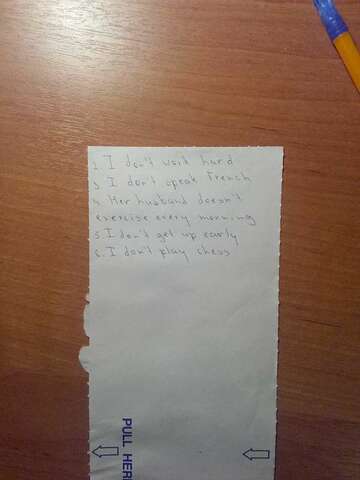 1. I don't work hard
3. I don't speak French
4. Her husband doesn't
exercise every morning
5. I don't get up early
6. I don't play chess
PULL HERE